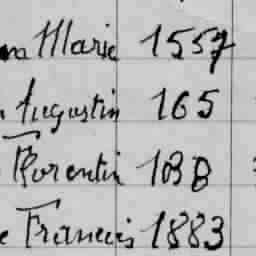 Marie 1557
Augustin 165
Florentin 10BB
Francis 1883